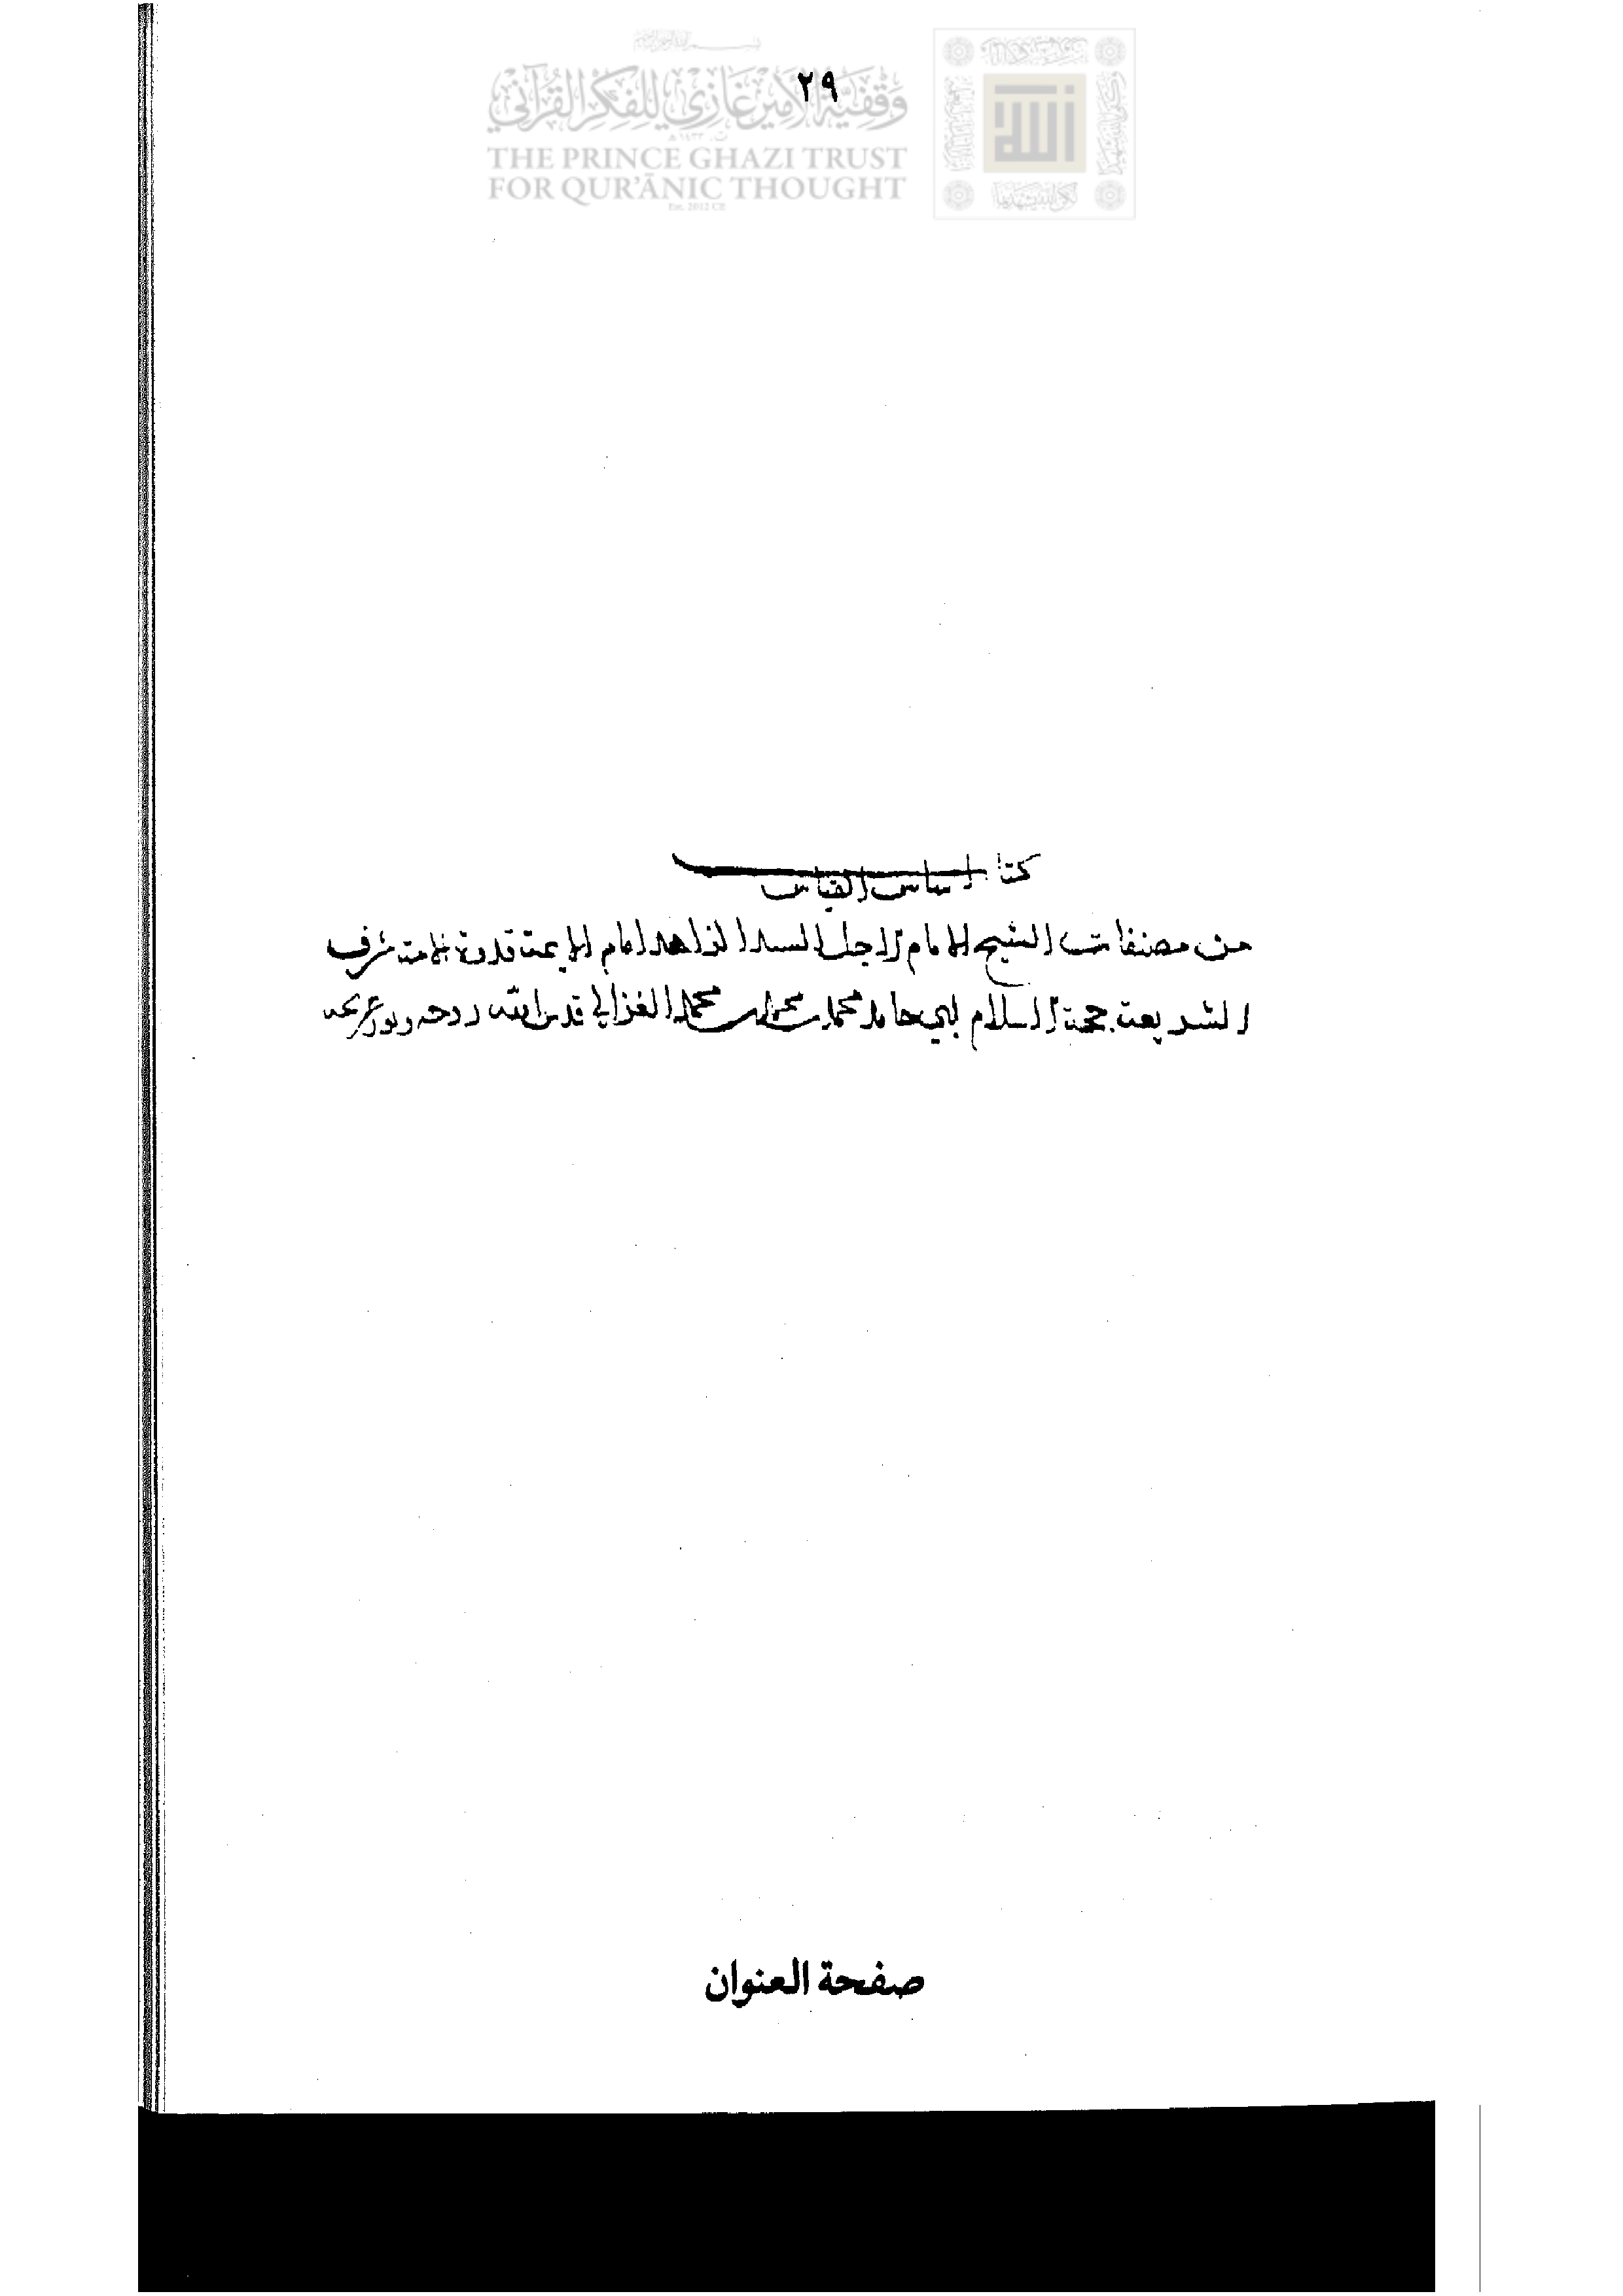 ٢٩
وقفية الأمير غازي للفكر القرآني
THE PRINCE GHAZI TRUST
FOR QUR'ĀNIC THOUGHT
Est. 2012 CE
كتاب اساس القياس
من مصنفات الشيخ الامام الاجل السيد الزاهد امام الايمة قدوة الامة شرف
الشريعة حجة الاسلام ابي حامد محمد بن محمد بن محمد الغزالي قدس الله روحه ونور ضريحه
صفحة العنوان